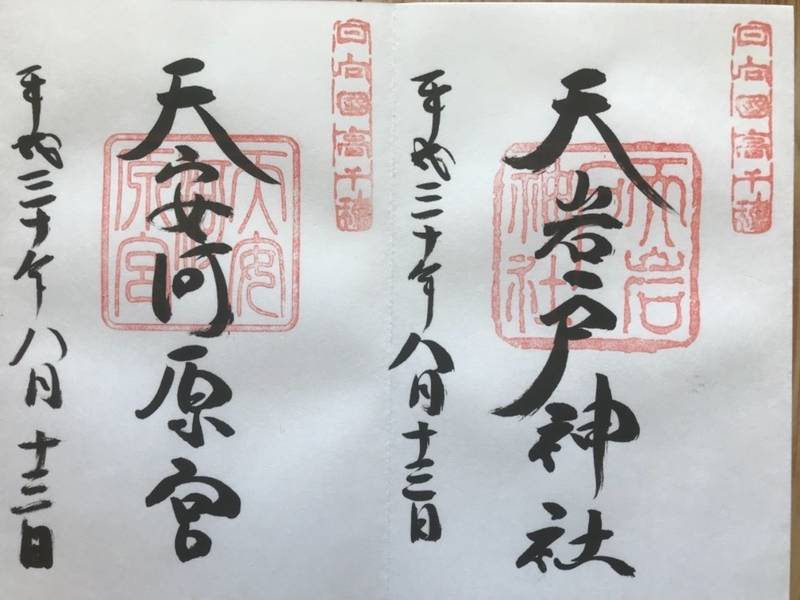 日向國高千穂
天岩戸神社
天岩戸神社
平成三十年八月十三日
日向國高千穂
天安河原宮
天安河原宮
平成三十年八月十三日